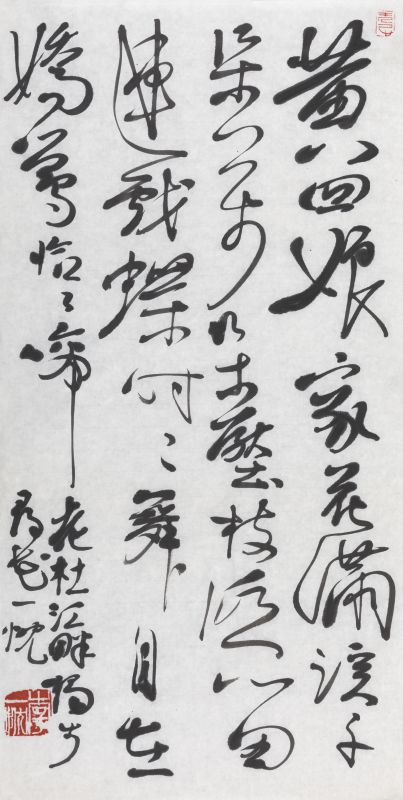 黄四娘家花滿溪千
朵万朵壓枝低留
連戲蝶时々舞自在
嬌鶯恰々啼
老杜江畔獨步
尋花一忱